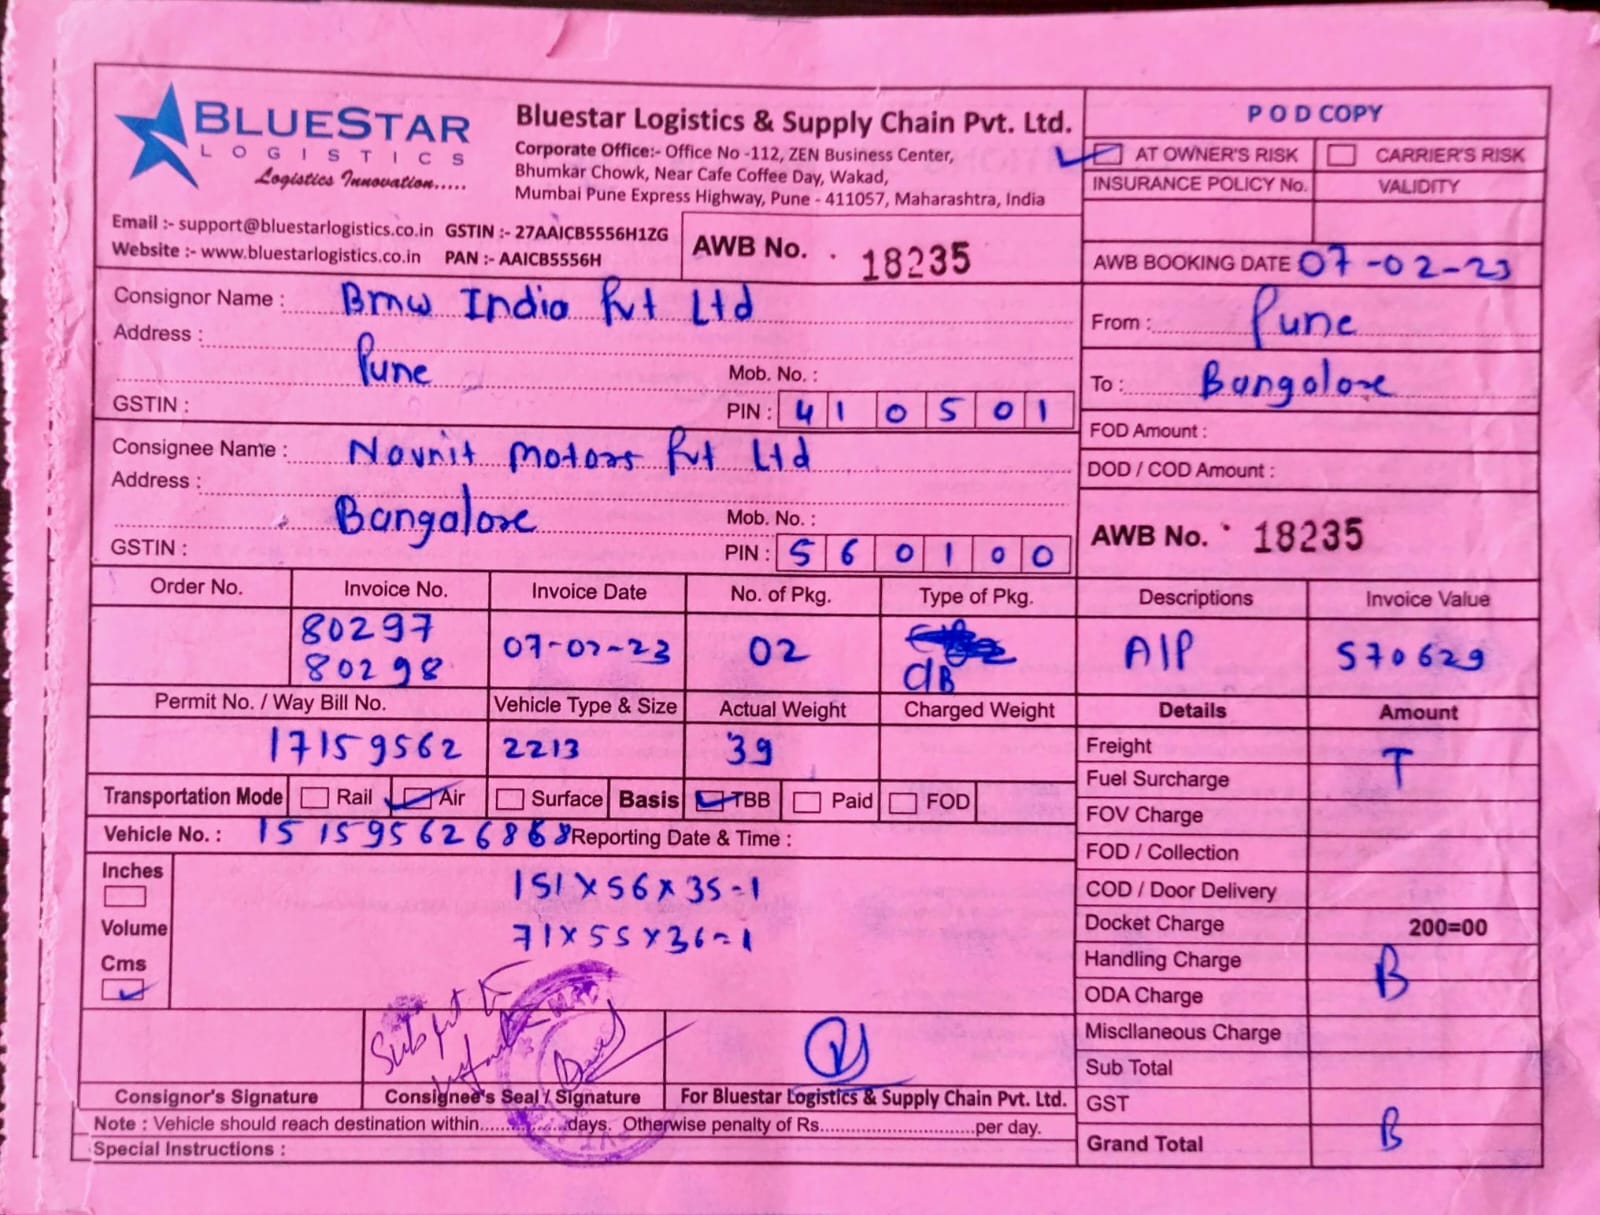 BLUESTAR
LOGISTICS
Logistics Innovation.....
Bluestar Logistics & Supply Chain Pvt. Ltd.
Corporate Office:- Office No -112, ZEN Business Center,
Bhumkar Chowk, Near Cafe Coffee Day, Wakad,
Mumbai Pune Express Highway, Pune - 411057, Maharashtra, India
Email :- support@bluestarlogistics.co.in GSTIN :- 27AAICB5556H1ZG
Website :- www.bluestarlogistics.co.in PAN :- AAICB5556H
AWB No. 18235
POD COPY
AT OWNER'S RISK CARRIER'S RISK
INSURANCE POLICY No. VALIDITY
AWB BOOKING DATE 07-02-23
Consignor Name : Bmw India Pvt Ltd
Address :
Pune
Mob. No. :
GSTIN :
PIN : 410501
From : Pune
To : Bangalore
FOD Amount :
DOD / COD Amount :
Consignee Name : Navnit Motors Pvt Ltd
Address :
Bangalore
Mob. No. :
GSTIN :
PIN : 560100
AWB No. 18235
Order No. Invoice No. Invoice Date No. of Pkg. Type of Pkg. Descriptions Invoice Value
80297
80298
07-02-23 02 CIB A/P 570629
Permit No. / Way Bill No. Vehicle Type & Size Actual Weight Charged Weight Details Amount
17159562 2213 39
Transportation Mode Rail Air Surface Basis TBB Paid FOD
Vehicle No. : Reporting Date & Time :
Inches
Volume
Cms
151x56x35-1
71x55x36-1
Freight
T
Fuel Surcharge
FOV Charge
FOD / Collection
COD / Door Delivery
Docket Charge 200=00
Handling Charge
B
ODA Charge
Miscllaneous Charge
Sub Total
GST
Grand Total B
Consignor's Signature
Consignee's Seal / Signature
For Bluestar Logistics & Supply Chain Pvt. Ltd.
Note : Vehicle should reach destination within...............days. Otherwise penalty of Rs............................per day.
Special Instructions :